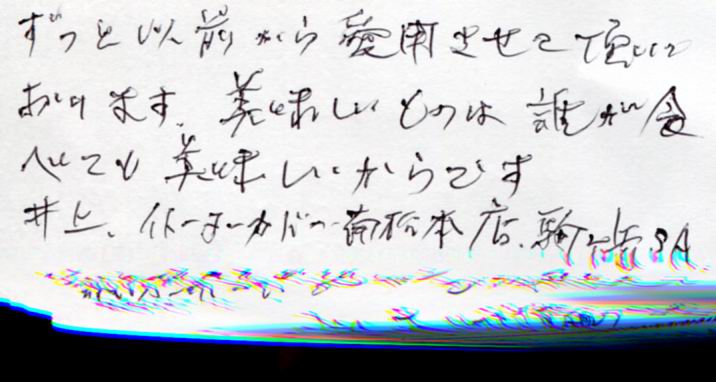 ずっと以前から愛用させて頂いて
おります。美味しいものは誰が食
べても美味しいからです
井上、イトーヨーカドー南松本店、駒ヶ岳SA